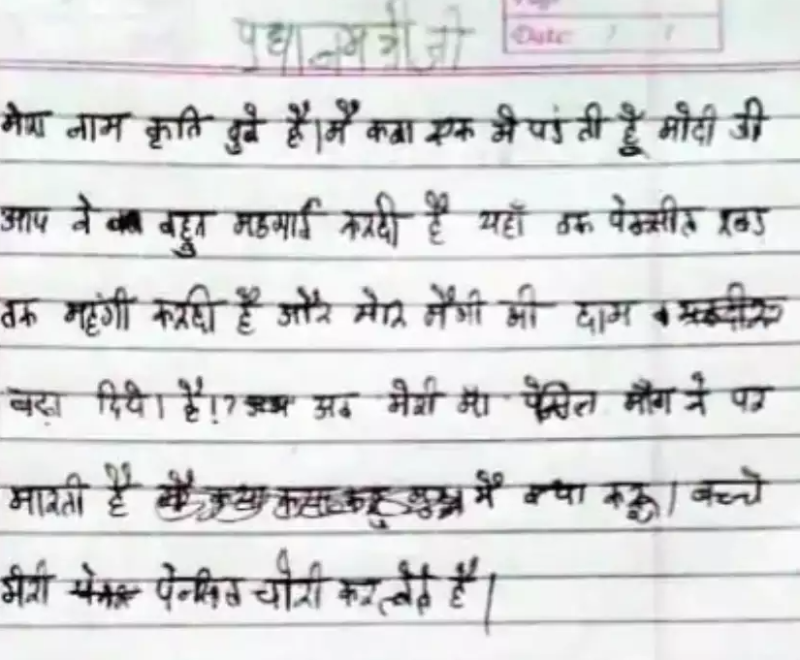 प्रधानमंत्री जी
Date / /
मेरा नाम कृति दुबे है। मैं कक्षा एक मे पडं ती हूँ मोदी जी
आप ने बहुत महगाई करदी है यहाँ तक पेन्सील रबड
तक महंगी करदी है और मेरि मैगी भी दाम
बढा दिये। है!? अब मेरी मा पेन्सिल माँग ने पर
मारती है मैं क्या करू। बच्चे
मेरी पेन्सिल चोरी कर लेते है।